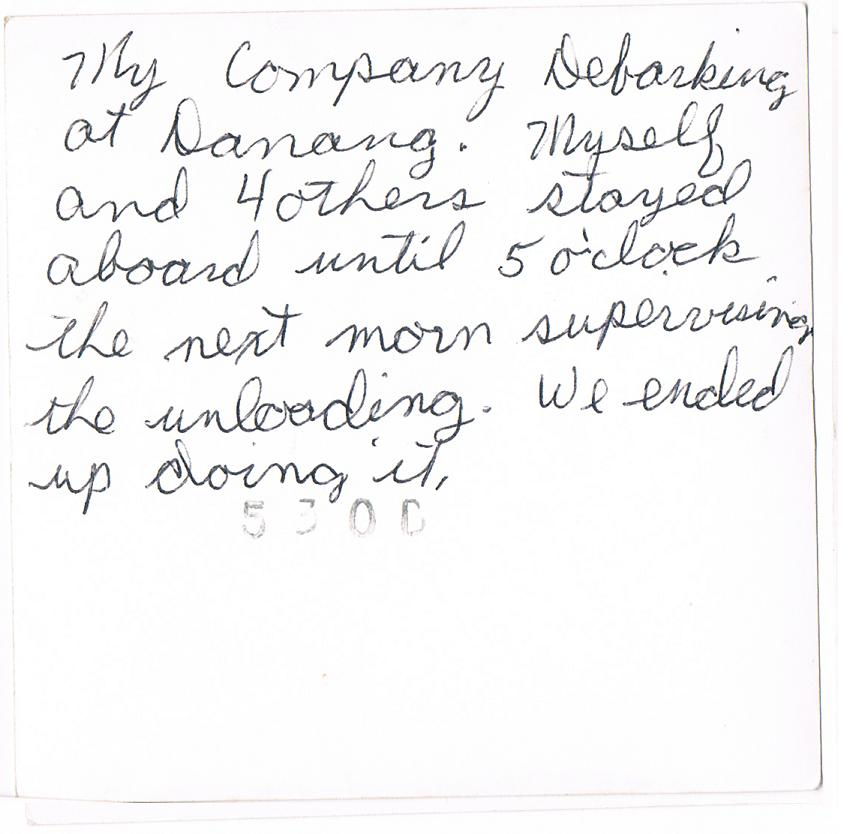 My Company Debarking
at Danang. Myself
and 4 others stayed
aboard until 5 o'clock
the next morn supervising
the unloading. We ended
up doing it,
5300